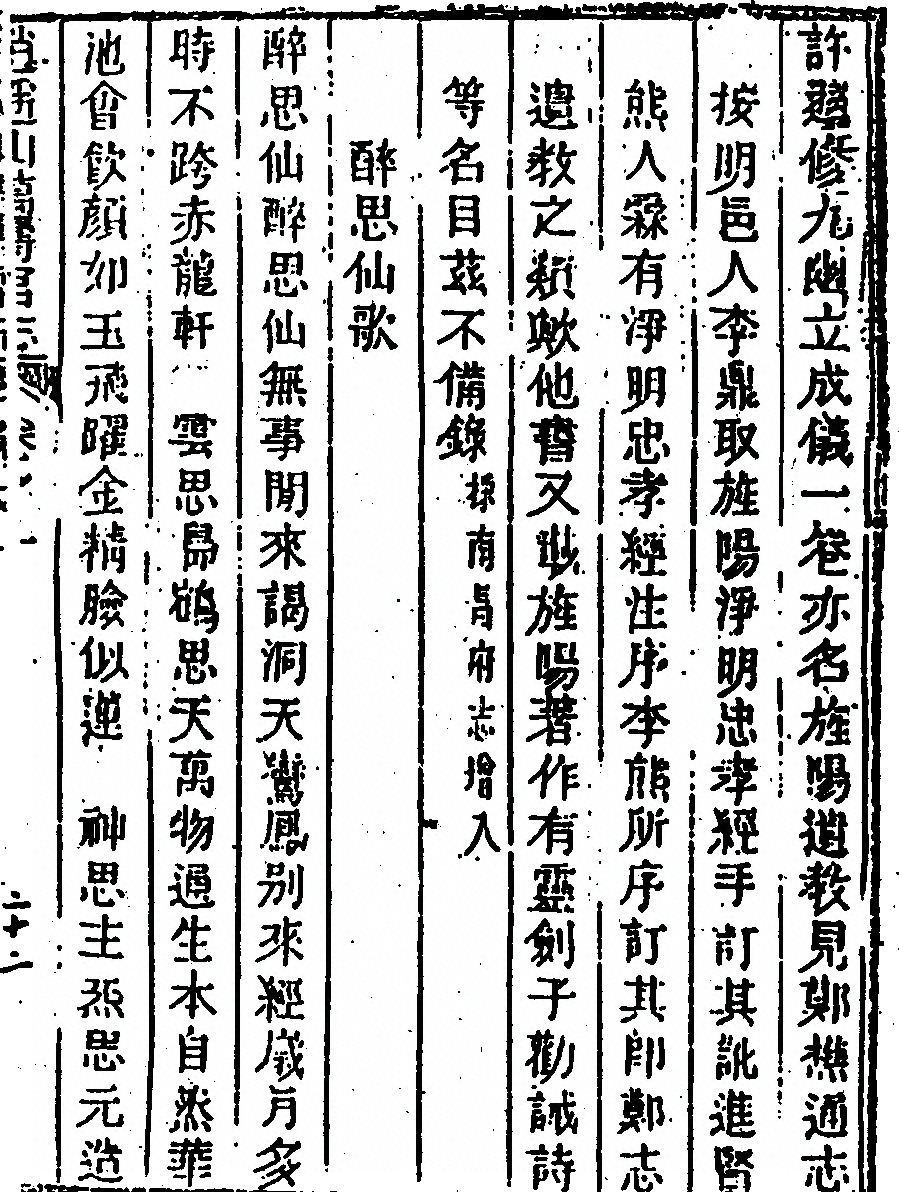 許遜修九幽立成儀一卷亦名旌陽遺教見鄭樵通志
按明邑人李鼎取旌陽淨明忠孝經手訂其訛進賢
熊人霖有淨明忠孝經注序李熊所序訂其即鄭志
遺教之類歟他書又載旌陽著作有靈劍子勸誡詩
等名目茲不備錄 採南昌府志增入
醉思仙歌
醉思仙醉思仙無事閒來謁洞天鸞鳳別來經歲月多
時不跨赤龍軒 雲思歸鶴思天萬物通生本自然華
池會飲顏如玉飛曜金精臉似蓮 神思主炁思元造
逍遙山萬壽宮志 卷
二十一